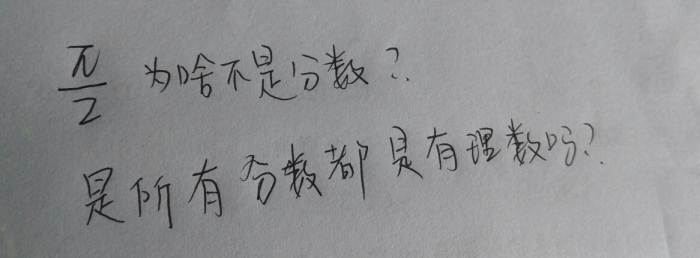 π/2 为啥不是分数?
是所有分数都是有理数吗?